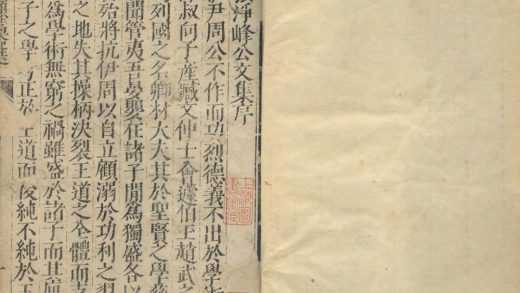 淨峰公文集序
尹周公不作而功烈德義不出於學術
叔向子產臧文仲士會蘧伯玉趙武之
列國之名卿材大夫其於聖賢之學
聞管夷吾晏嬰在諸子閒爲獨盛各以
殆將抗伊周以自立顧溺於功利之習
之地失其操柄決裂王道之全體而
爲學術無窮之禍雖盛於諸子而其
子之學 正於王道而後純不純於王
上海圖書館藏